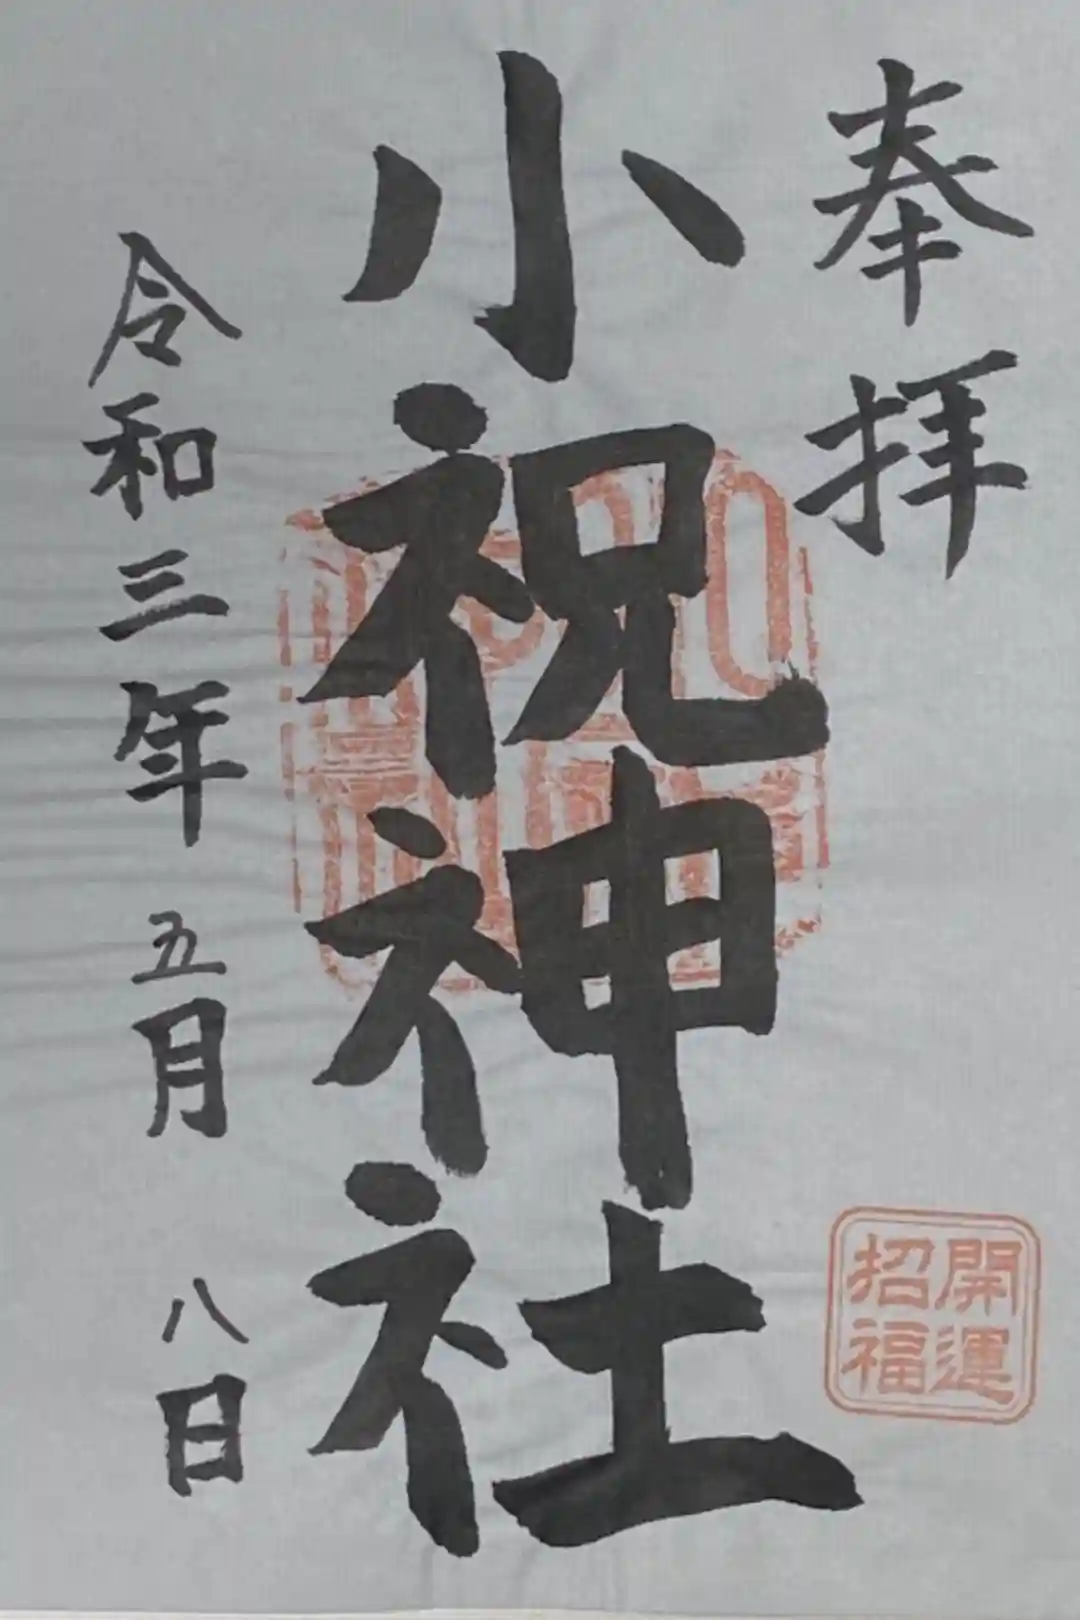 奉拝
開運
招福
小祝神社
令和三年五月八日